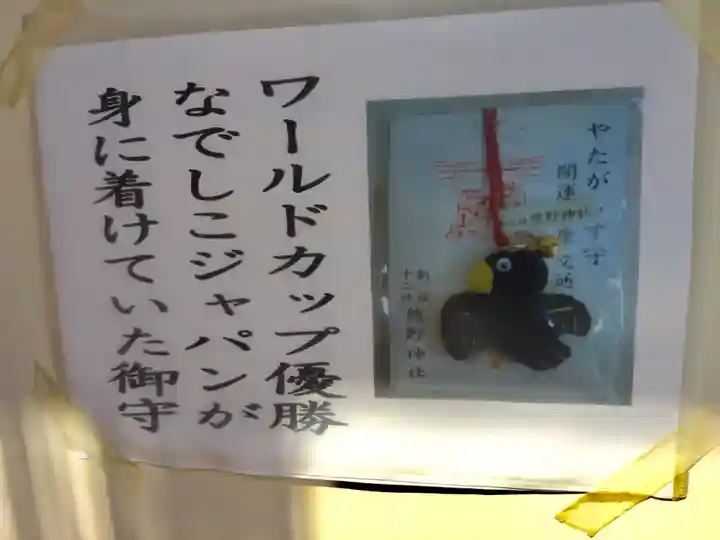 ワールドカップ優勝
なでしこジャパンが
身に着けていた御守
やたが
す守
開運
熊野神社